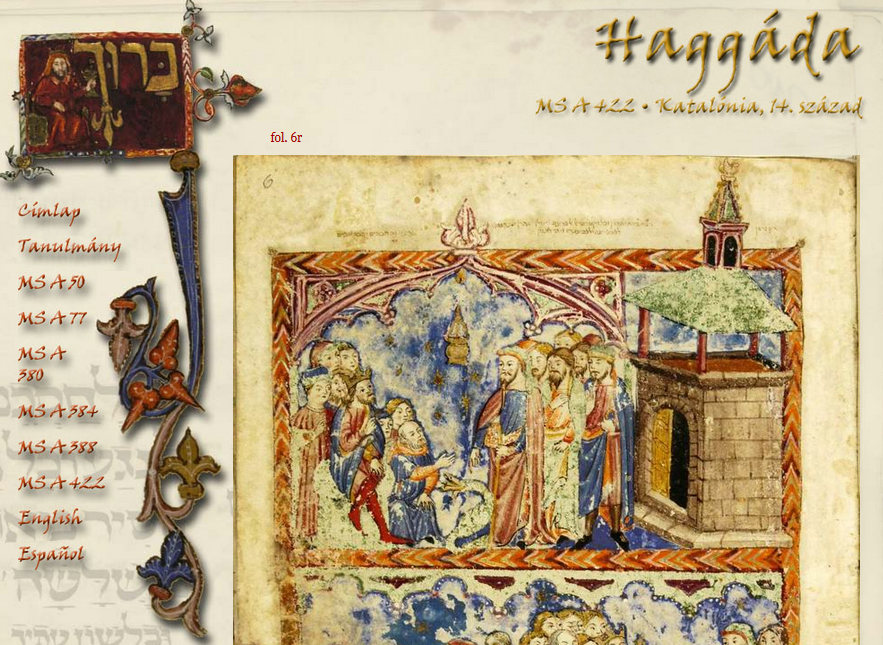 ברוך
Haggáda
MS A 422 • Katalónia, 14. század
fol. 6r
6
Címlap
Tanulmány
MS A 50
MS A 77
MS A
380
MS A 384
MS A 388
MS A 422
English
Español